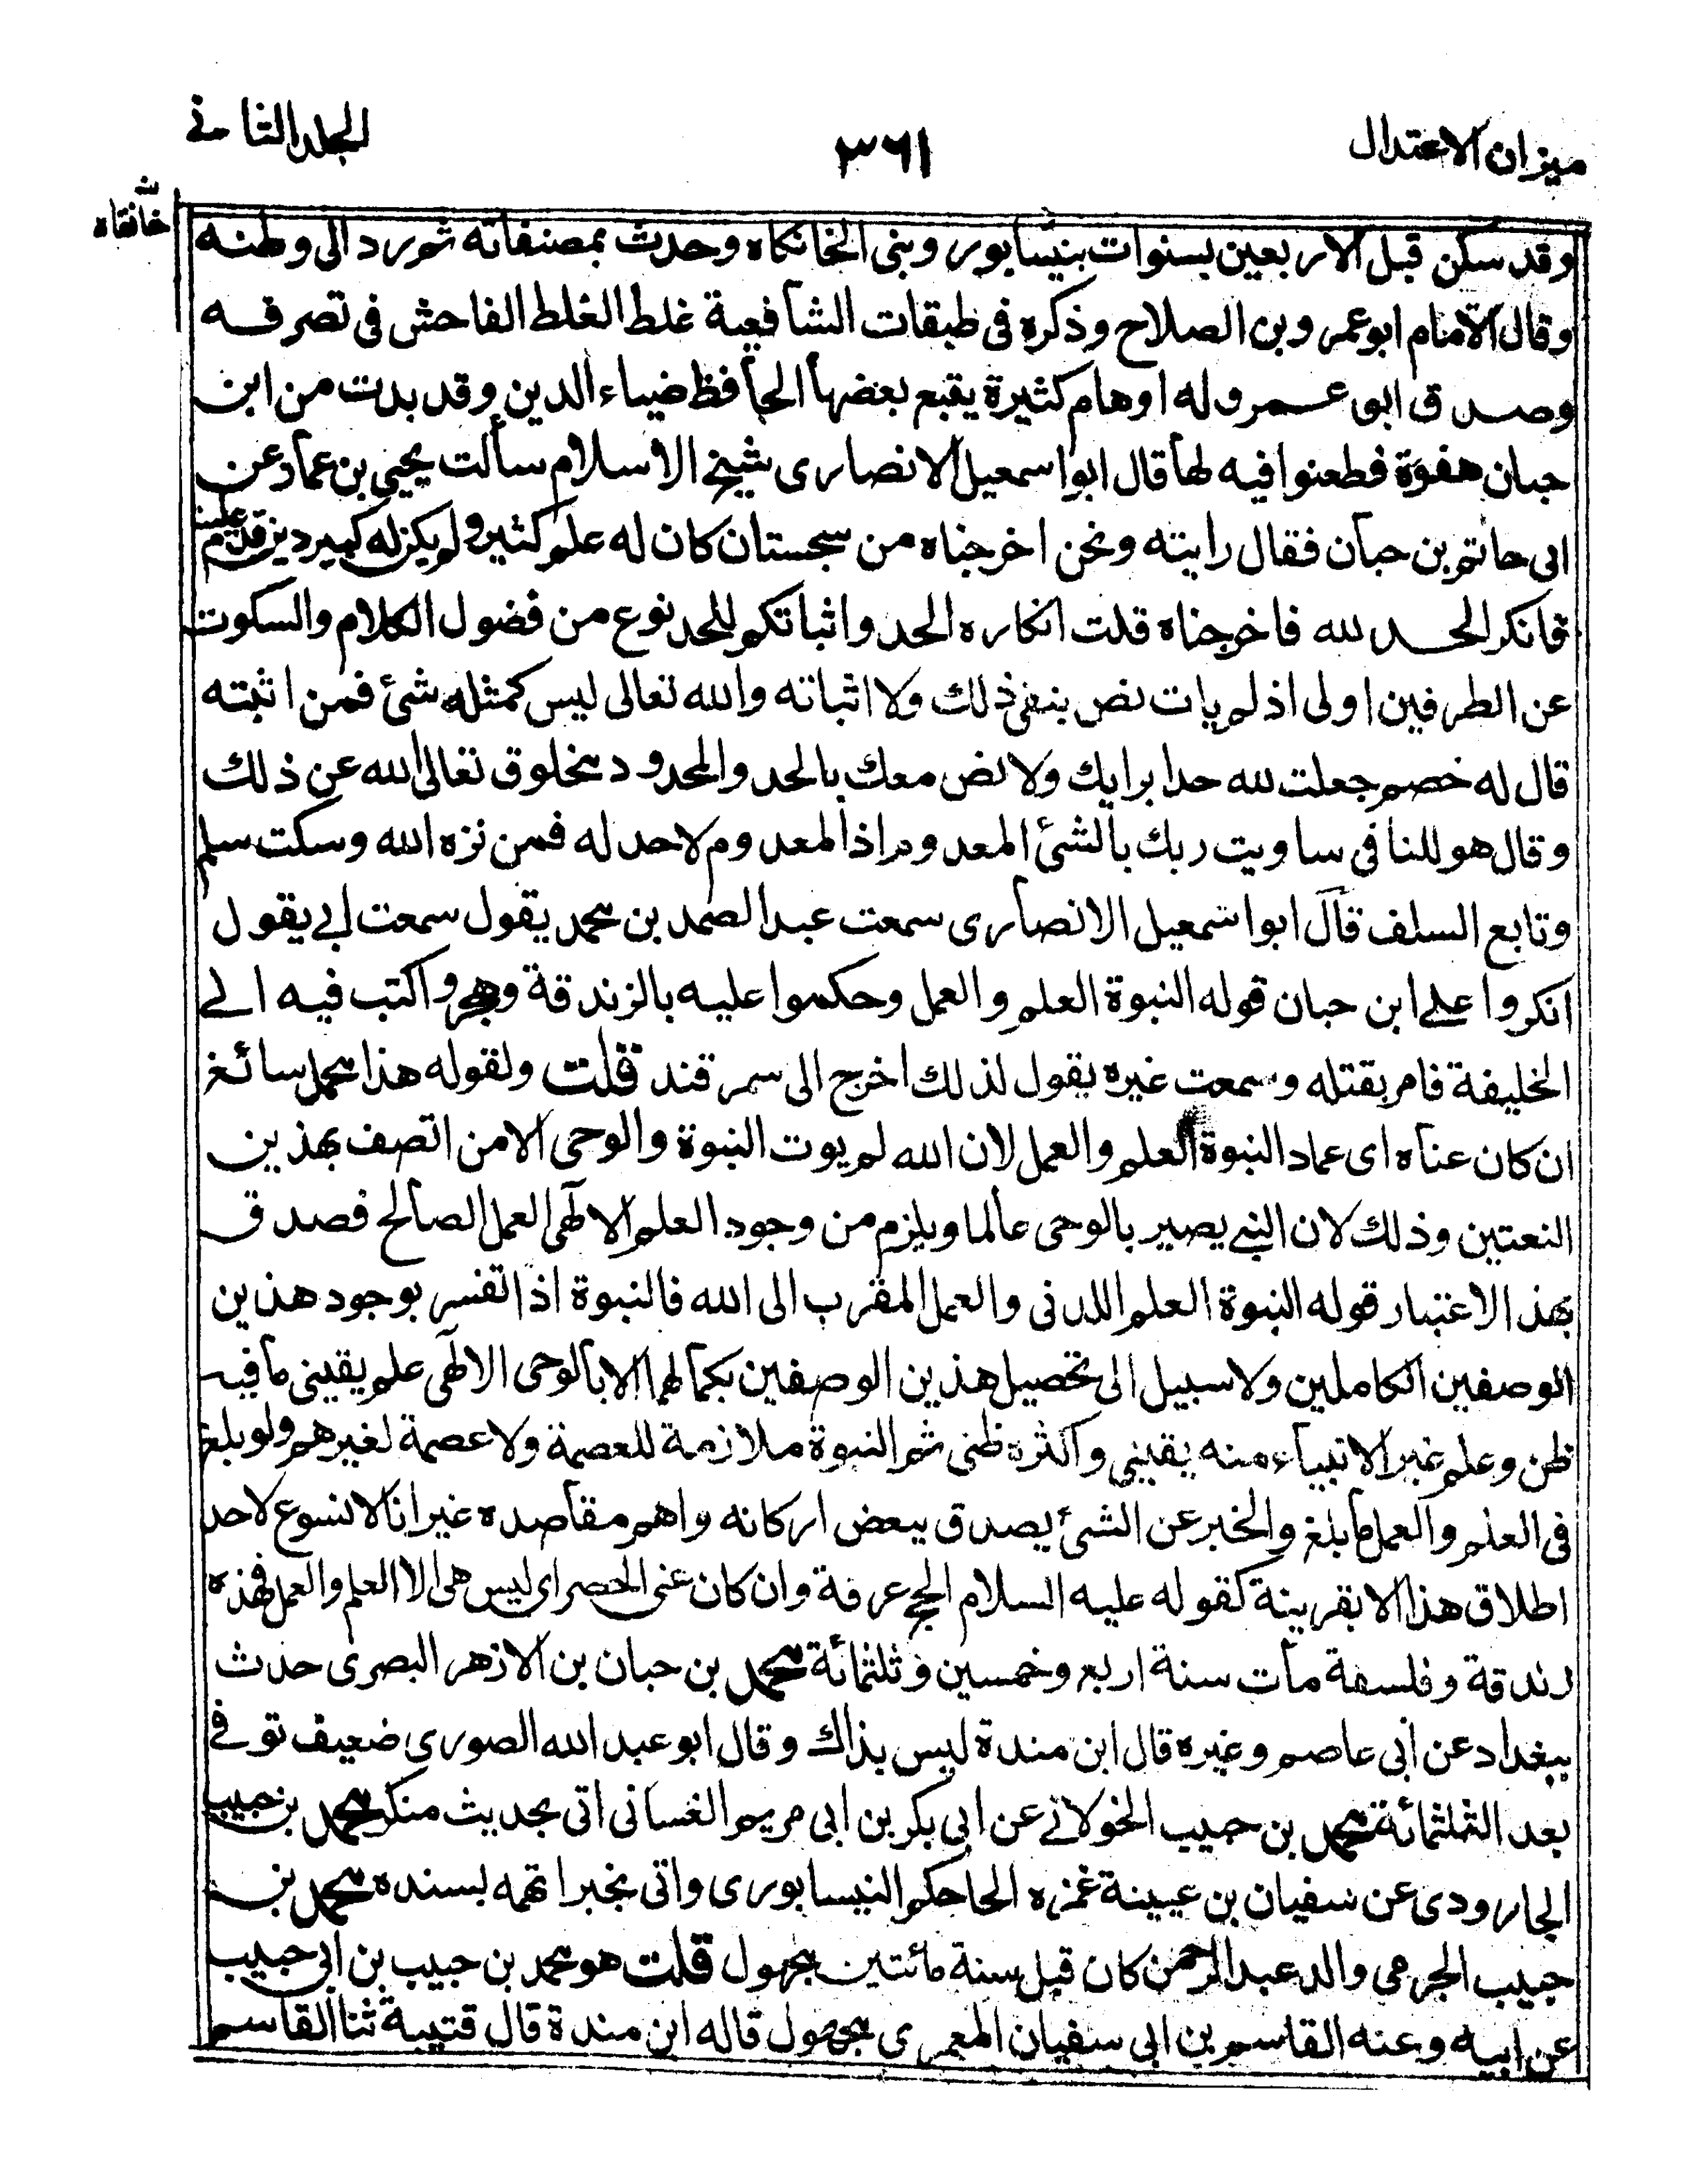 ميزان الاعتدال
٣٦١
المجلد الثاني
خانقاه
وقد سكن قبل الاربعين بسنوات بنيسابور وبنى الخانكاه وحدث بمصنفاته ثم رد الى وطنه
وقال الامام ابو عمرو بن الصلاح وذكره فى طبقات الشافعية غلط الغلط الفاحش فى تصرفه
وصدق ابو عمرو له اوهام كثيرة يتبع بعضها الحافظ ضياء الدين وقد بدت من ابن
حبان هفوة فطعنوا فيه لها قال ابوا سمعيل الانصارى شيخ الاسلام سألت يحيى بن عمار عن
ابى حاتم بن حبان فقال رايته ونحن اخرجناه من سجستان كان له علم كثير ولم يكن له كبير دين قدم علينا
فانكر الحد لله فاخرجناه قلت انكاره الحد واثباتكم للحد نوع من فضول الكلام والسكوت
عن الطرفين اولى اذ لم يات نص بنفى ذلك ولا اثباته والله تعالى ليس كمثله شئ فمن اثبته
قال له خصم جعلت لله حدا برايك ولا نص معك بالحد والمحدود مخلوق تعالى الله عن ذلك
وقال هو للنافى ساويت ربك بالشئ المعدوم اذ المعدوم لا حد له فمن نزه الله وسكت سلم
وتابع السلف قال ابوا سمعيل الانصارى سمعت عبد الصمد بن محمد يقول سمعت ابي يقول
انكروا على ابن حبان قوله النبوة العلم والعمل وحكموا عليه بالزندقة وهجر واكتب فيه الى
الخليفة فامر بقتله وسمعت غيره يقول لذلك اخرج الى سمرقند قلت ولقوله هذا محمل سائغ
ان كان عناه اى عماد النبوة العلم والعمل لان الله لم يوت النبوة والوحى الا من اتصف بهذين
النعتين وذلك لان النبي يصير بالوحى عالما ويلزم من وجود العلم الالهى العمل الصالح فصدق
بهذا الاعتبار قوله النبوة العلم اللدنى والعمل المقرب الى الله فالنبوة اذا تفسر بوجود هذين
الوصفين الكاملين ولا سبيل الى تحصيل هذين الوصفين بكمالهما الا بالوحى الالهى علم يقينى ما فيه
ظن وعلم غير الانبياء منه يقينى واكثره ظنى ثم النبوة ملازمة للعصمة ولا عصمة لغيرهم ولو بلغ
فى العلم والعمل ما بلغ والخبر عن الشئ يصدق ببعض اركانه واهم مقاصده غير انا لا نسوغ لاحد
اطلاق هذا الا بقرينة كقوله عليه السلام الحج عرفة وان كان عنى الحصر اى ليس هى الا العلم والعمل فهذه
زندقة وفلسفة مات سنة اربع وخمسين وثلثمائة محمد بن حبان بن الازهر البصرى حدث
ببغداد عن ابى عاصم وغيره قال ابن مندة ليس بذاك وقال ابو عبد الله الصورى ضعيف توفي
بعد الثلثمائة محمد بن حبيب الخولاني عن ابى بكر بن ابى مريم الغسانى اتى بحديث منكر محمد بن حبيب
الجارودى عن سفيان بن عيينة غمزه الحاكم النيسابورى واتى بخبر اتهمه بسنده محمد بن
حبيب الجرمى والد عبد الرحمن كان قبل سنة مائتين مجهول قلت هو محمد بن حبيب بن ابى حبيب
عن ابيه وعنه القاسم بن ابى سفيان المعمرى مجهول قاله ابن مندة قال قتيبة ثنا القاسم